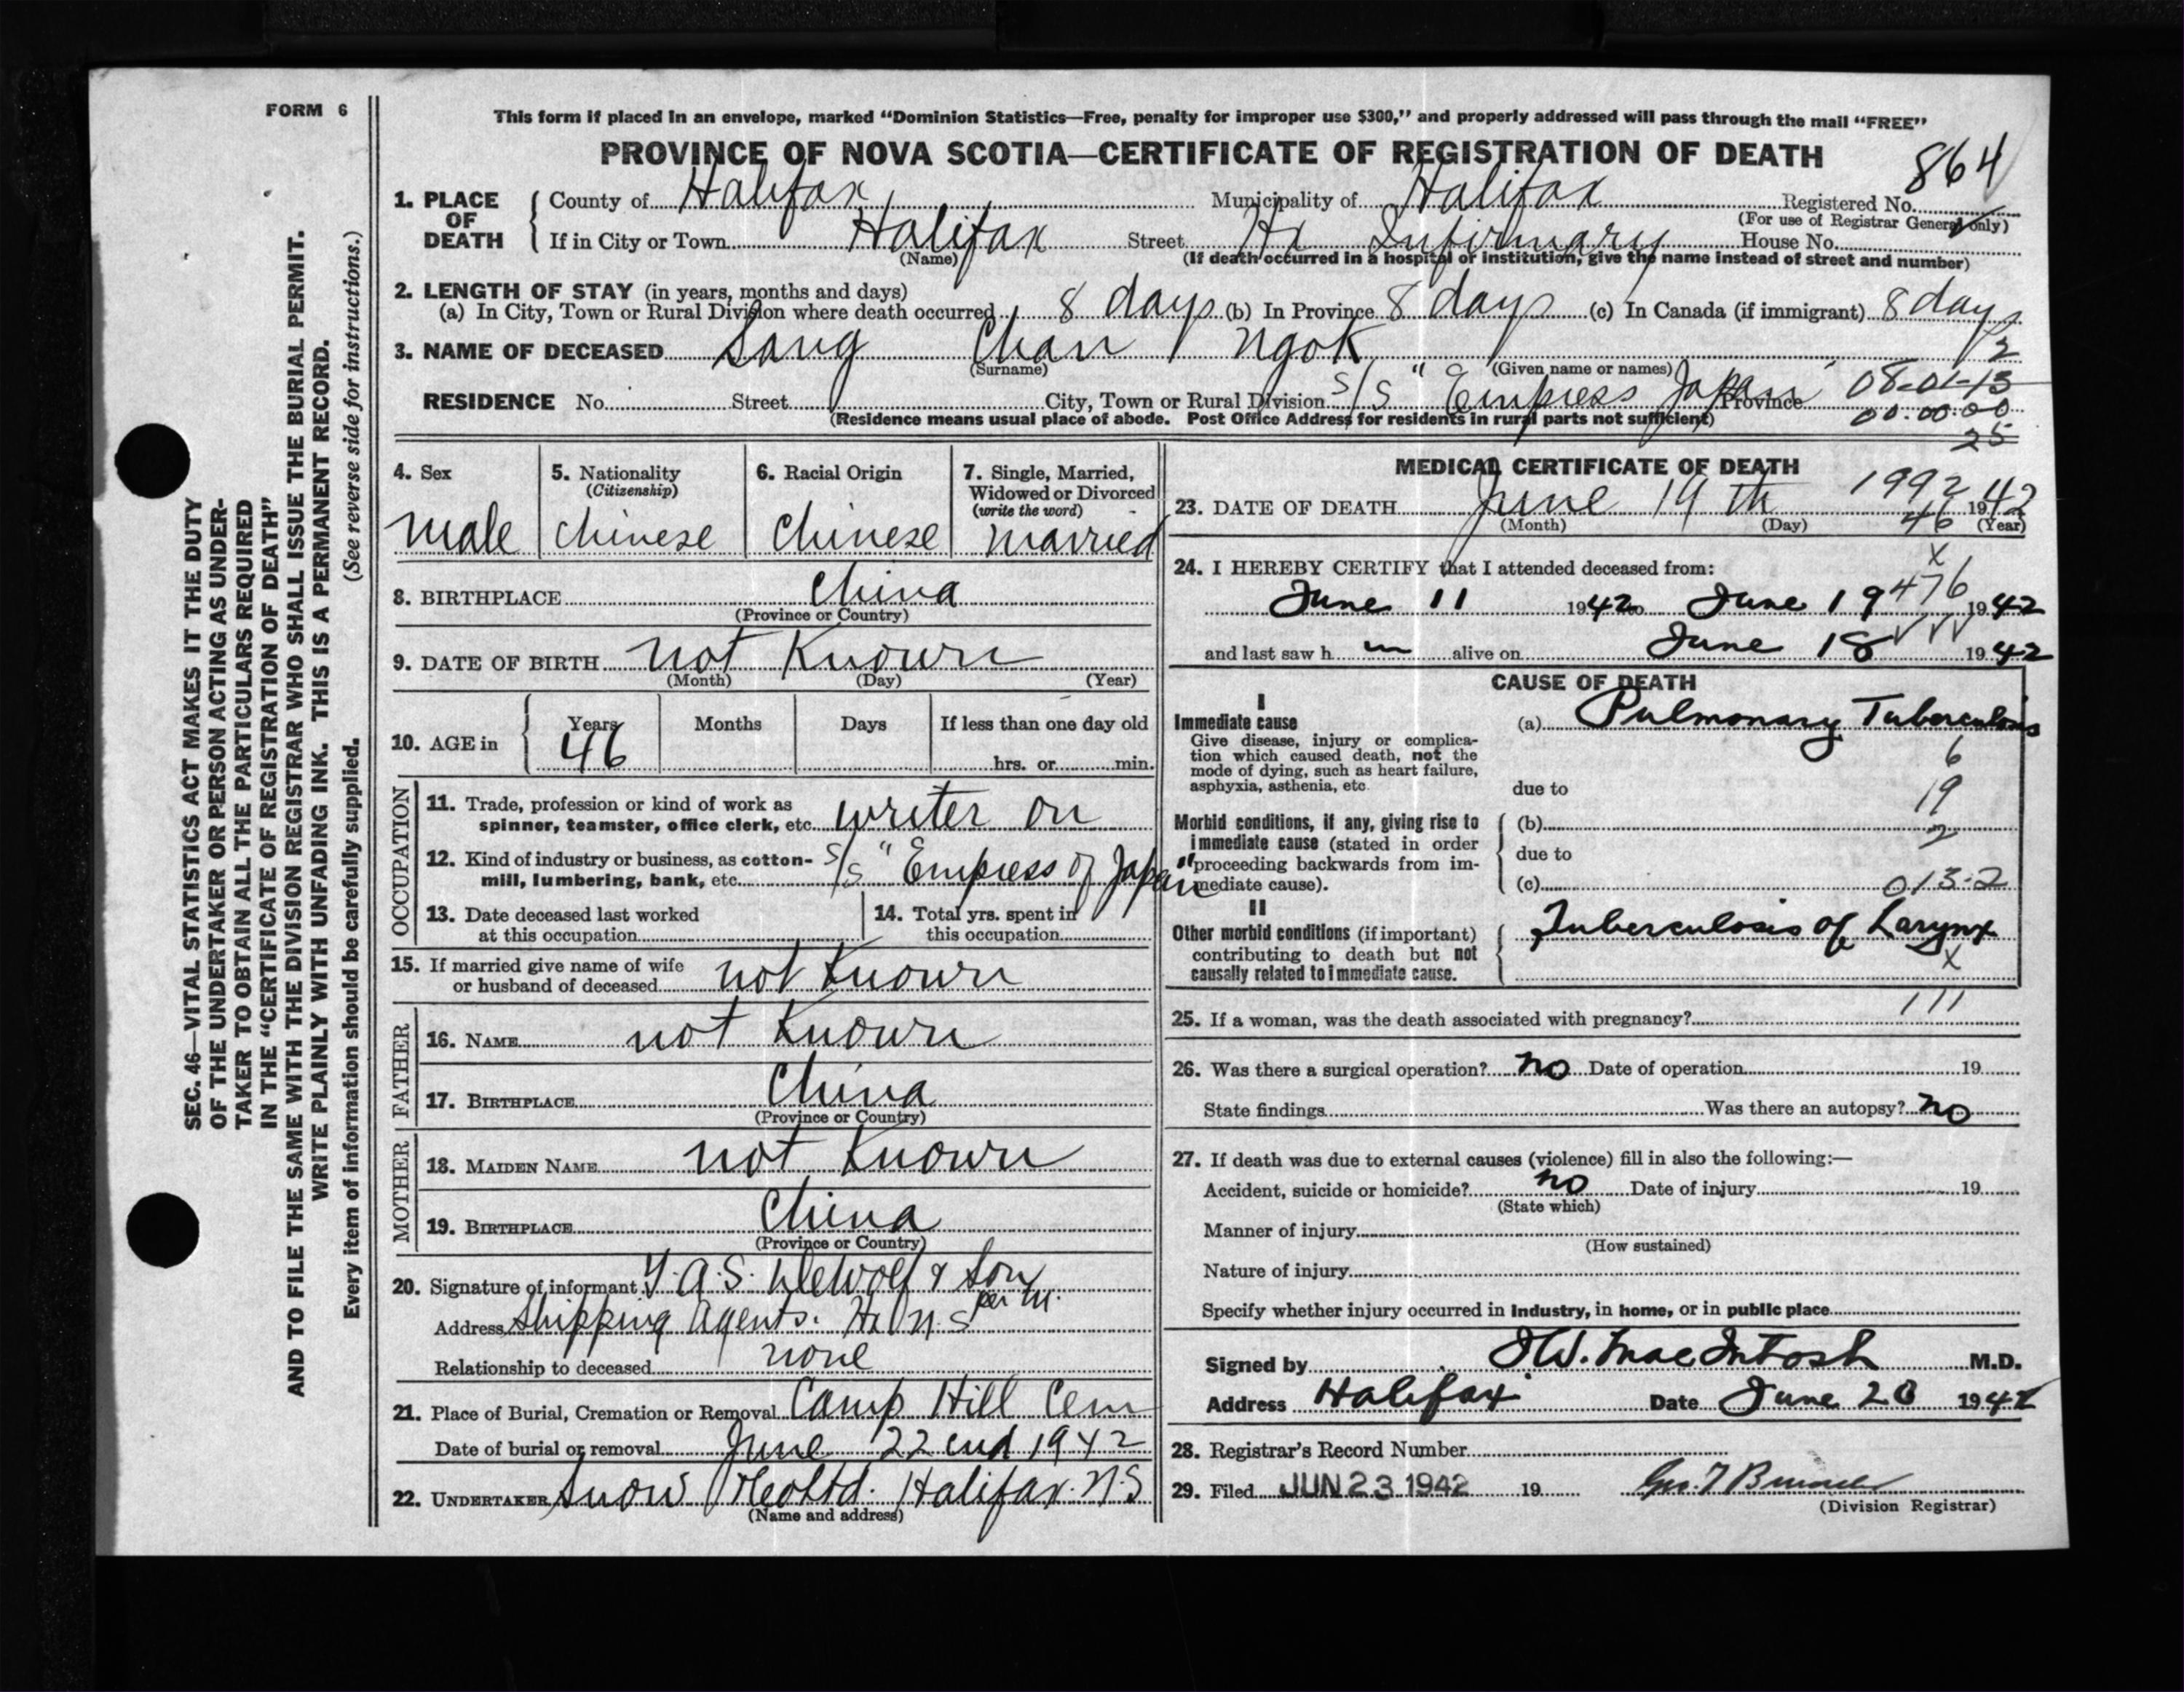 FORM 6
This form if placed in an envelope, marked “Dominion Statistics—Free, penalty for improper use $300,” and properly addressed will pass through the mail “FREE”
PROVINCE OF NOVA SCOTIA—CERTIFICATE OF REGISTRATION OF DEATH
864
1. PLACE OF DEATH
County of Halifax Municipality of Halifax Registered No.
(For use of Registrar General only)
If in City or Town Halifax Street Hx Infirmary House No.
(Name) (If death occurred in a hospital or institution, give the name instead of street and number)
2. LENGTH OF STAY (in years, months and days)
(a) In City, Town or Rural Division where death occurred 8 days (b) In Province 8 days (c) In Canada (if immigrant) 8 days
3. NAME OF DECEASED Sang Chan Ngok 2
(Surname) (Given name or names)
RESIDENCE No. Street City, Town or Rural Division S/S "Empress Japan" Province 08-01-13
(Residence means usual place of abode. Post Office Address for residents in rural parts not sufficient) 00.00.00
25
4. Sex
male
5. Nationality
(Citizenship)
Chinese
6. Racial Origin
Chinese
7. Single, Married,
Widowed or Divorced
(write the word)
married
8. BIRTHPLACE China
(Province or Country)
9. DATE OF BIRTH not Known
(Month) (Day) (Year)
10. AGE in Years Months Days If less than one day old
46 hrs. or min.
OCCUPATION
11. Trade, profession or kind of work as
spinner, teamster, office clerk, etc. writer on
12. Kind of industry or business, as cotton-
mill, lumbering, bank, etc. S/S "Empress of Japan"
13. Date deceased last worked
at this occupation
14. Total yrs. spent in
this occupation
15. If married give name of wife
or husband of deceased not Known
FATHER
16. NAME not Known
17. BIRTHPLACE China
(Province or Country)
MOTHER
18. MAIDEN NAME not Known
19. BIRTHPLACE China
(Province or Country)
20. Signature of informant T.A.S. DeWolf & Son
per M.
Address Shipping Agents. Hx N.S
Relationship to deceased none
21. Place of Burial, Cremation or Removal Camp Hill Cem
Date of burial or removal June 22 cnd 1942
22. UNDERTAKER Snow & Co Ltd. Halifax. N.S
(Name and address)
MEDICAL CERTIFICATE OF DEATH
1992
23. DATE OF DEATH June 19 th 1942
(Month) (Day) 46 (Year)
24. I HEREBY CERTIFY that I attended deceased from: x
476
June 11 1942 to June 19 1942
and last saw h m alive on June 18 1942
CAUSE OF DEATH
I
Immediate cause
Give disease, injury or complica-
tion which caused death, not the
mode of dying, such as heart failure,
asphyxia, asthenia, etc.
(a) Pulmonary Tuberculosis
6
due to
19
Morbid conditions, if any, giving rise to
immediate cause (stated in order
proceeding backwards from im-
mediate cause).
(b)
2
due to
(c) 013-2
II
Other morbid conditions (if important)
contributing to death but not
causally related to immediate cause.
Tuberculosis of Larynx
x
111
25. If a woman, was the death associated with pregnancy?
26. Was there a surgical operation? no Date of operation 19
State findings Was there an autopsy? no
27. If death was due to external causes (violence) fill in also the following:—
Accident, suicide or homicide? no Date of injury 19
(State which)
Manner of injury
(How sustained)
Nature of injury
Specify whether injury occurred in industry, in home, or in public place
Signed by MacIntosh M.D.
Address Halifax Date June 20 1942
28. Registrar's Record Number
29. Filed JUN 23 1942 19
(Division Registrar)
SEC. 46—VITAL STATISTICS ACT MAKES IT THE DUTY
OF THE UNDERTAKER OR PERSON ACTING AS UNDER-
TAKER TO OBTAIN ALL THE PARTICULARS REQUIRED
IN THE “CERTIFICATE OF REGISTRATION OF DEATH”
AND TO FILE THE SAME WITH THE DIVISION REGISTRAR WHO SHALL ISSUE THE BURIAL PERMIT.
WRITE PLAINLY WITH UNFADING INK. THIS IS A PERMANENT RECORD.
Every item of information should be carefully supplied. (See reverse side for instructions.)